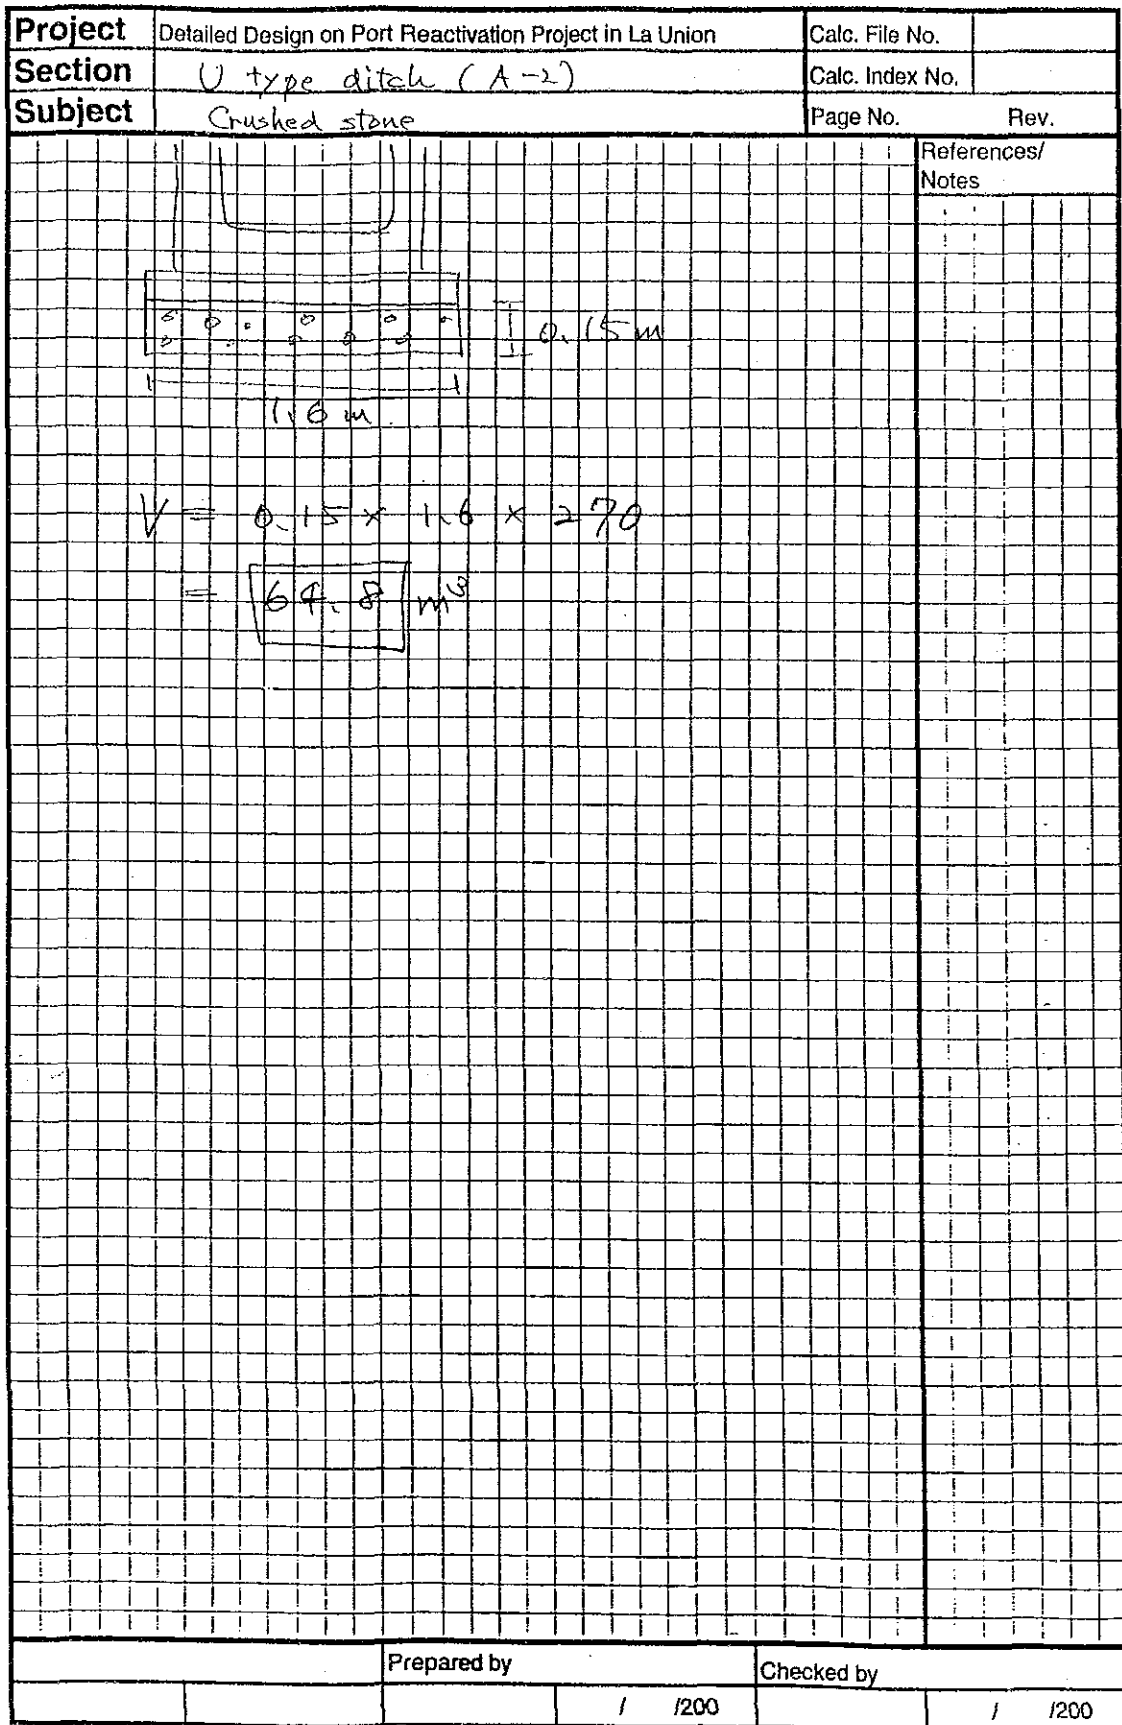 Project Detailed Design on Port Reactivation Project in La Union Calc. File No.
Section U type ditch (A-2) Calc. Index No.
Subject Crushed stone Page No. Rev.
References/
Notes
0.15 m
1.6 m
V = 0.15 x 1.6 x 270
= 64.8 m³
Prepared by Checked by
/ /200 / /200